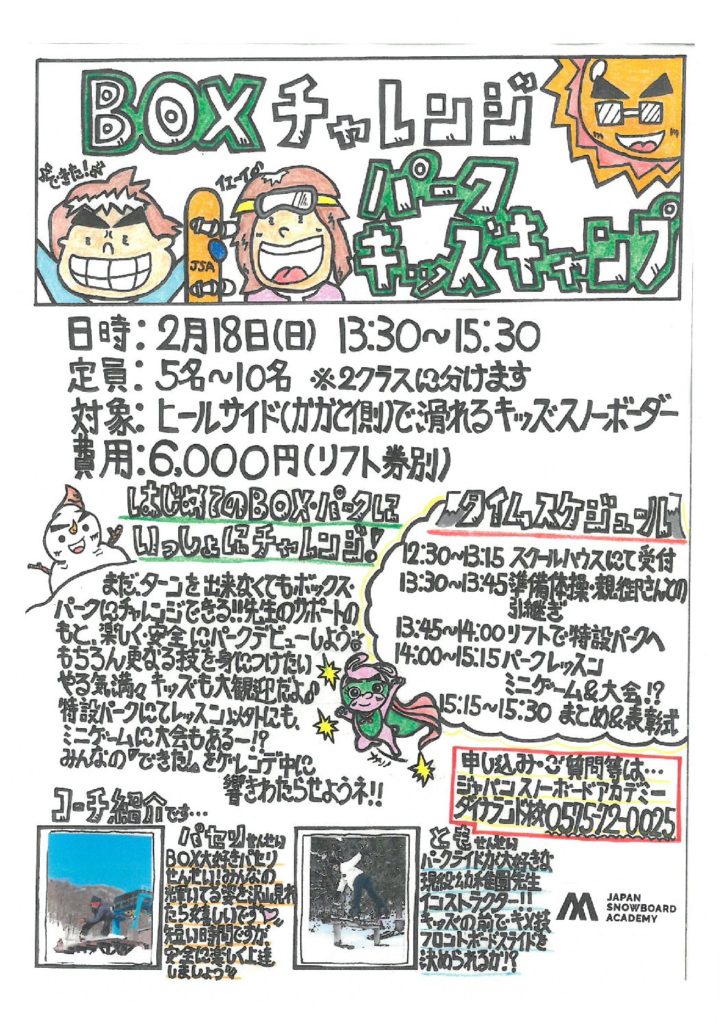 BOXチャレンジ
パーク
キッズキャンプ
できた!
イェーイ♪
JSA
日時：2月18日(日) 13:30～15:30
定員：5名～10名 ※2クラスに分けます
対象：ヒールサイド(かかと側)で滑れるキッズスノーボーダー
費用：6,000円(リフト券別)
はじめてのBOX・パークに
いっしょにチャレンジ!
まだ、ターンを出来なくてもボックス・
パークにチャレンジできる!!先生のサポートの
もと、楽しく・安全にパークデビューしよう
もちろん更なる技を身につけたい
やる気満々キッズも大観迎だよ♪
特設パークにてレッスン以外にも、
ミニゲームに大会もあるー!?
みんなの『できた!』をゲレンデ中に
響きわたらせようネ!!
タイムスケジュール
12:30～13:15 スクールハウスにて受付
13:30～13:45 準備体操・親御さんとの
引継ぎ
13:45～14:00 リフトで特設パークへ
14:00～15:15 パークレッスン
ミニゲーム&大会!?
15:15～15:30 まとめ&表彰式
申し込み・ご質問等は…
ジャパンスノーボードアカデミー
ダイナランド校 0575-72-0025
コーチ紹介です…
パセリせんせい
BOX大好きパセリ
せんせい!みんなの
輝いてる姿を沢山見れ
たら嬉しいです♡
短い時間ですが、
安全に楽しく上達
しましょう
ともせんせい
パークライドが大好きな
現役幼稚園先生
インストラクター!!
キッズの前でキメ技
フロントボードスライドを
決められるか!?
JAPAN
SNOWBOARD
ACADEMY